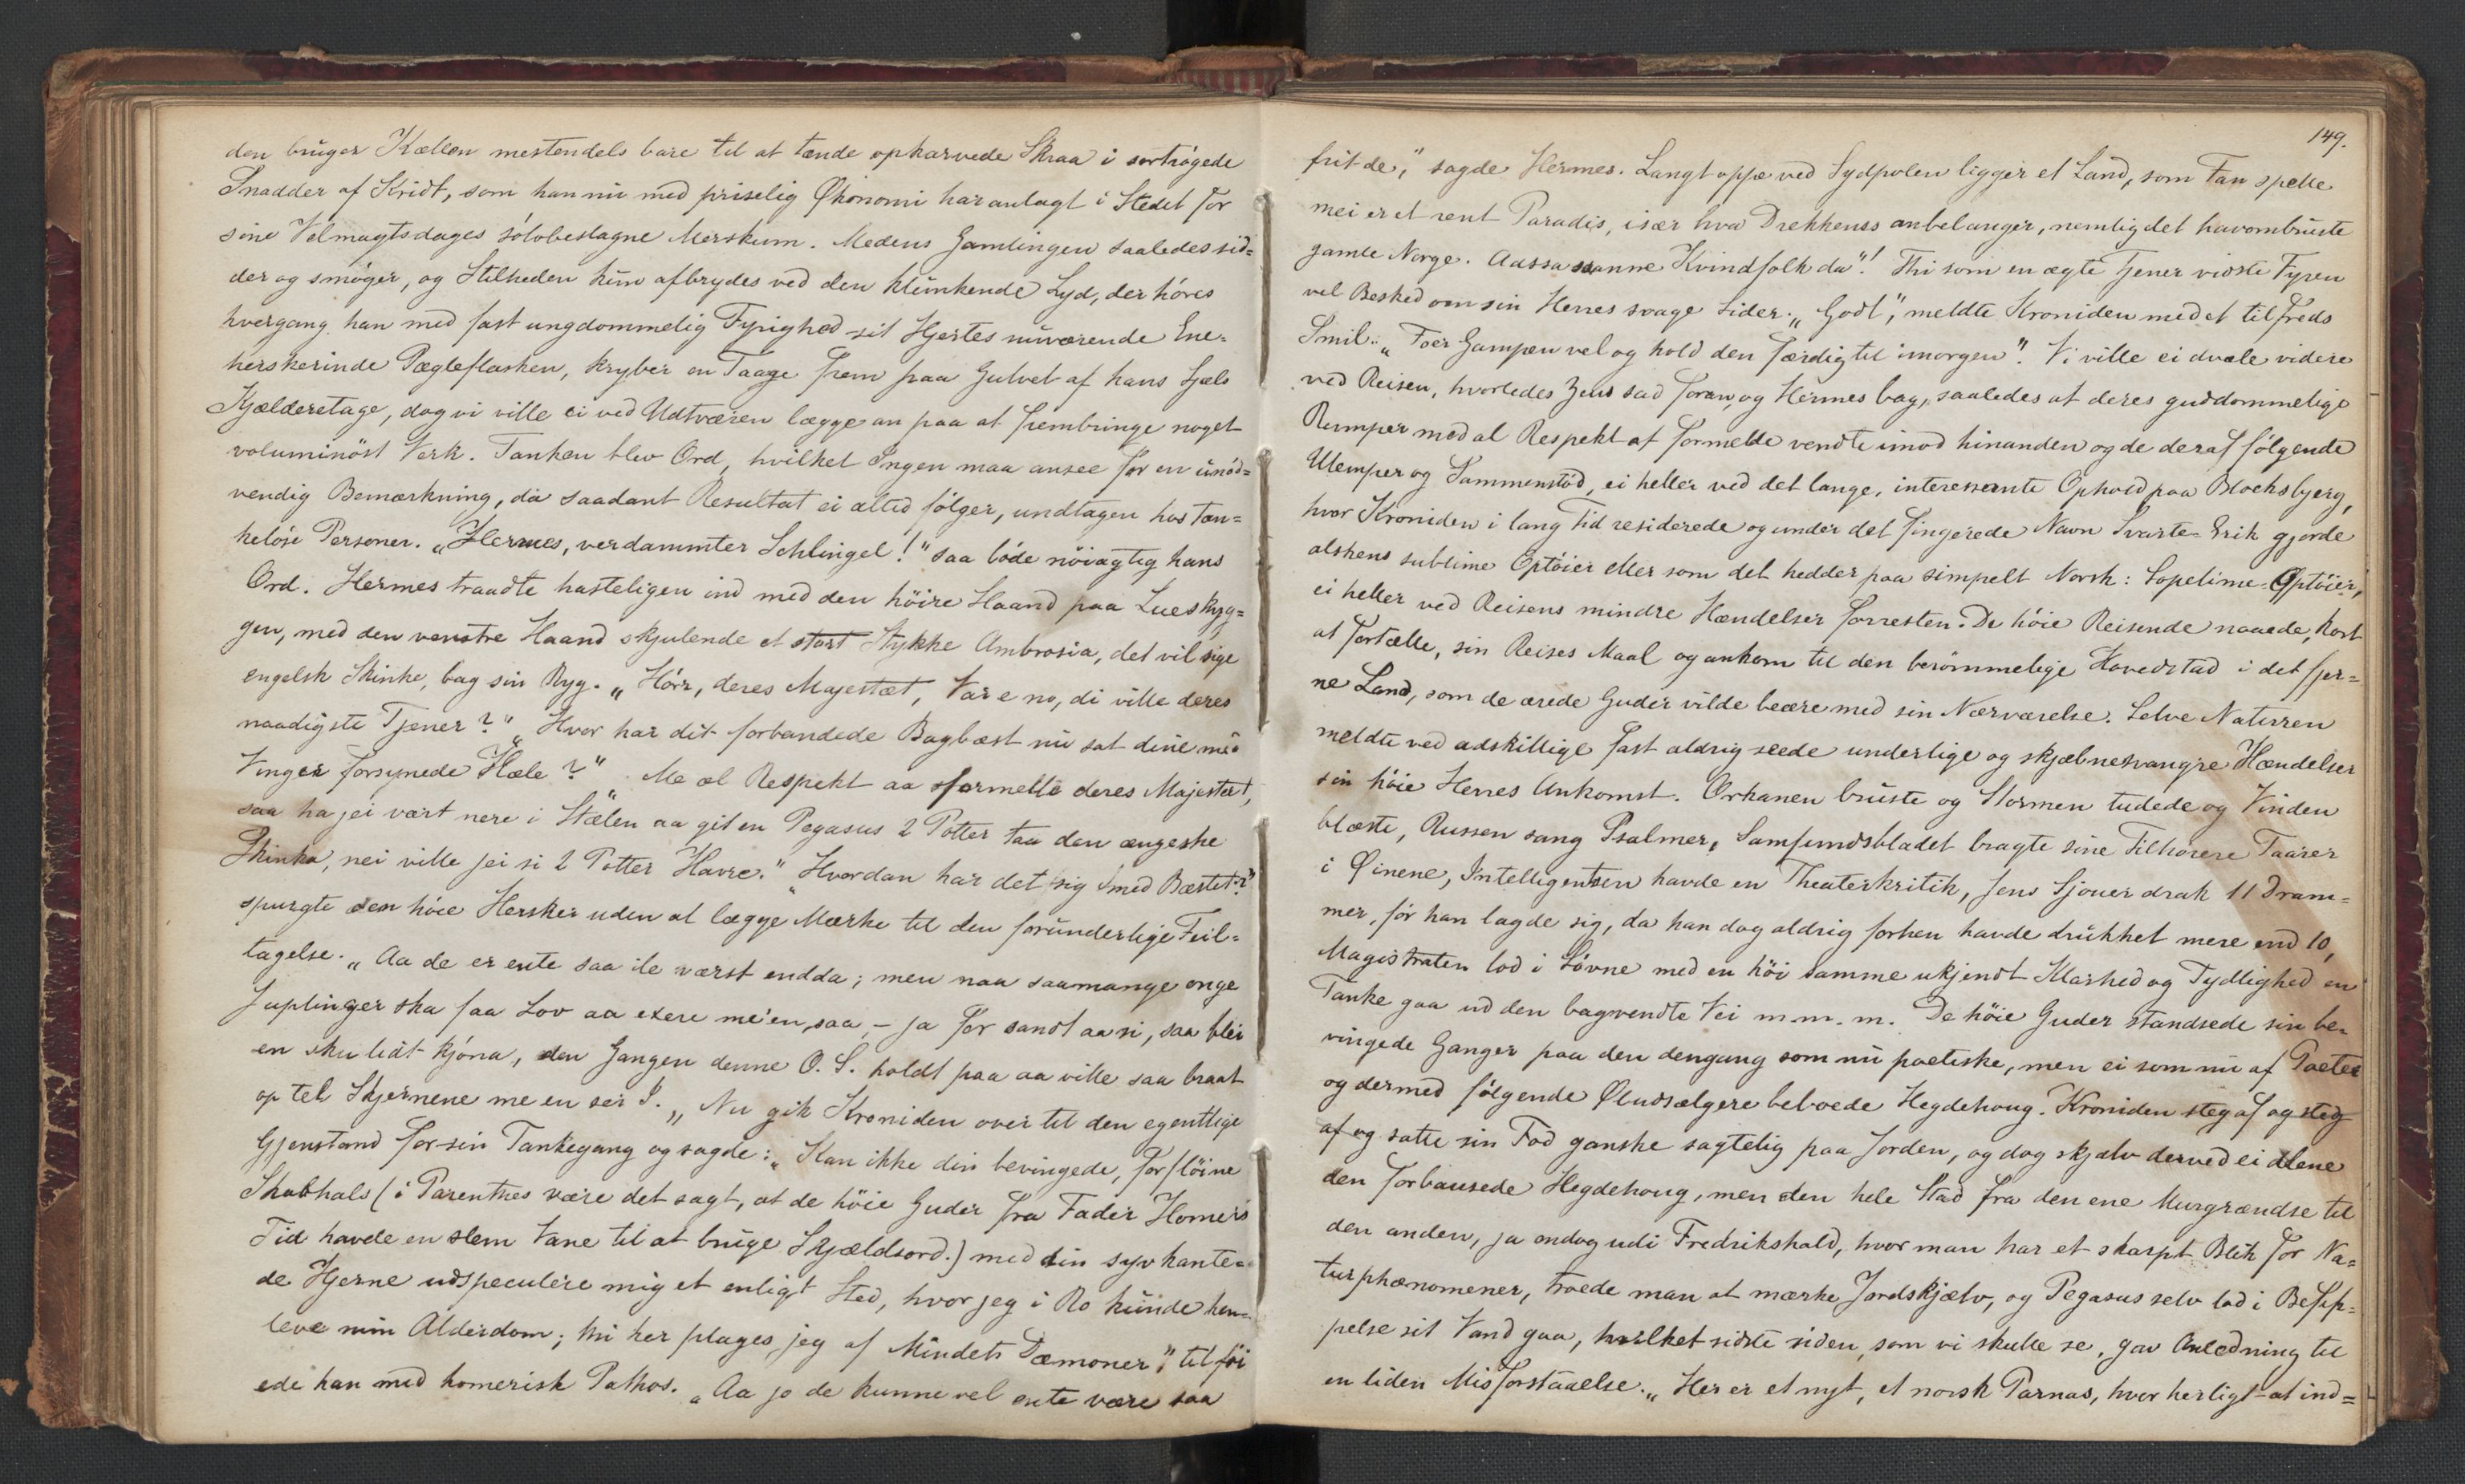 den bruger Kællen mestendels bare til at tænde opkarvede Skraa i sortrøgede
Snadder af Kridt, som han nu med priselig Økonomi har anlagt i Stedet for
sine Velmagtsdages sølvbeslagne Merskum. Medens Gamlingen saaledes sid=
der og smøger, og Stilheden kun afbrydes ved den klunkende Lyd, der høres
hvergang han med fast ungdommelig Fyrighed sit Hjertes nuværende Ene=
herskerinde Pægleflasken, kryber en Taage frem paa Gulvet af hans Sjæls
Kjælderetage, dog vi ville ei ved Udtværen lægge an paa at frembringe noget
voluminøst Verk. Tanken blev Ord, hvilket Ingen maa ansee for en unød=
vendig Bemærkning, da saadant Resultat ei altid følger, undtagen hos tan=
keløse Personer. „Hermes, verdammter Schlingel!" saa løde nøiagtig hans
Ord. Hermes traadte hasteligen ind med den høire Haand paa Lueskyg=
gen, med den venstre Haand skjulende et stort Stykke Ambrosia, det vil sige
engelsk Skinke, bag sin Ryg. „Hørr, deres Majestæt, Var e no, di ville deres
naadigste Tjener?" „Hvor har dit forbandede Bagbæst nu sat dine med
Vinger forsynede Hæle?" „Me al Respekt aa formelle deres Majestæt,
saa ha jei vært nere i Stalen aa git en Pegasus 2 Potter taa den ængeske
Skinka, nei ville jei si 2 Potter Havre." „Hvordan har det sig med Bæstet?"
spurgte den høie Hersker uden at lægge Mærke til den forunderlige Feil=
tagelse. „Aa de er ente saa ile værst endda; men naa saamange onge
Juplinger ska faa Lov aa exere me'en, saa, – ja for sandt aa si, saa blei
en sku lidt kjøna, den Gangen denne O. S. holdt paa aa ville saa braat
op tel Stjernene me en ser I. „Nu gik Kroniden over til den egentlige
Gjenstand for sin Tankegang og sagde: „Kan ikke din bevingede, forfløine
Skabhals (i Parenthes være det sagt, at de høie Guder fra Fader Homers
Tid havde en slem Vane til at bruge Skjældsord.) med din syvkante=
de Hjerne udspeculere mig et enligt Sted, hvor jeg i Ro kunde hen=
leve min Alderdom; thi her plages jeg af Mindets Dæmoner," tilføi
ede han med homerisk Pathos. „Aa jo de kunne vel ente være saa
149.
frit de," sagde Hermes. Langt oppe ved Sydpolen ligger et Land, som Fan spelle
mei er et rent Paradis, især hva Drekkenss anbelanger, nemlig det havombruste
gamle Norge. Aassa sanne Kvindfolk da"! Thi som en ægte Tjener vidste Fyren
vel Besked om sin Herres svage Sider. „Godt", meldte Kroniden med et tilfreds
Smil: „Foer Gampen vel og hold den færdig til imorgen". Vi ville ei dvæle videre
ved Reisen, hvorledes Zeus sad foran, og Hermes bag, saaledes at deres guddommelige
Rumper med al Respekt at formelde vendte imod hinanden og de deraf følgende
Ulemper og Sammenstød, ei heller ved det lange, interessante Ophold paa Blocksbjerg,
hvor Kroniden i lang Tid residerede og under det fingerede Navn Svarte-Erik gjorde
alskens sublime Optøier eller som det hedder paa simpelt Norsk: Sopelime-Optøier,
ei heller ved Reisens mindre Hændelser forresten. De høie Reisende naaede, kort
at fortælle, sin Reises Maal og ankom til den berømmelige Hovedstad i det fjer=
ne Land, som de ærede Guder vilde beære med sin Nærværelse. Selve Naturen
meldte ved adskillige fast aldrig seede underlige og skjæbnesvangre Hændelser
sin høie Herres Ankomst. Orkanen bruste og Stormen tudede og Vinden
blæste, Russen sang Psalmer, Samfundsbladet bragte sine Tilhørere Taarer
i Øinene, Intelligentsen havde en Theaterkritik, Jens Sjouer drak 11 Dram=
mer, før han lagde sig, da han dog aldrig forhen havde drukket mere end 10,
Magistraten lod i Søvne med en høi samme ukjendt Klarhed og Tydlighed en
Tanke gaa ud den bagvendte Vei m. m. m. De høie Guder standsede sin be=
vingede Ganger paa den dengang som nu poetiske, men ei som nu af Poeter
og dermed følgende Øludsælgere beboede Hegdehoug. Kroniden steg af og steg
af og satte sin Fod ganske sagtelig paa Jorden, og dog skjælv derved ei alene
den forbausede Hegdehoug, men den hele Stad fra den ene Murgrændse til
den anden, ja endog udi Fredrikshald, hvor man har et skarpt Blik for Na=
turphænomener, troede man at mærke Jordskjælv, og Pegasus selv lod i Befip=
pelse sit Vand gaa, hvilket sidste siden, som vi skulle se, gav Anledning til
en liden Misforstaaelse. „Her er et nyt, et norsk Parnas, hvor herligt at ind=